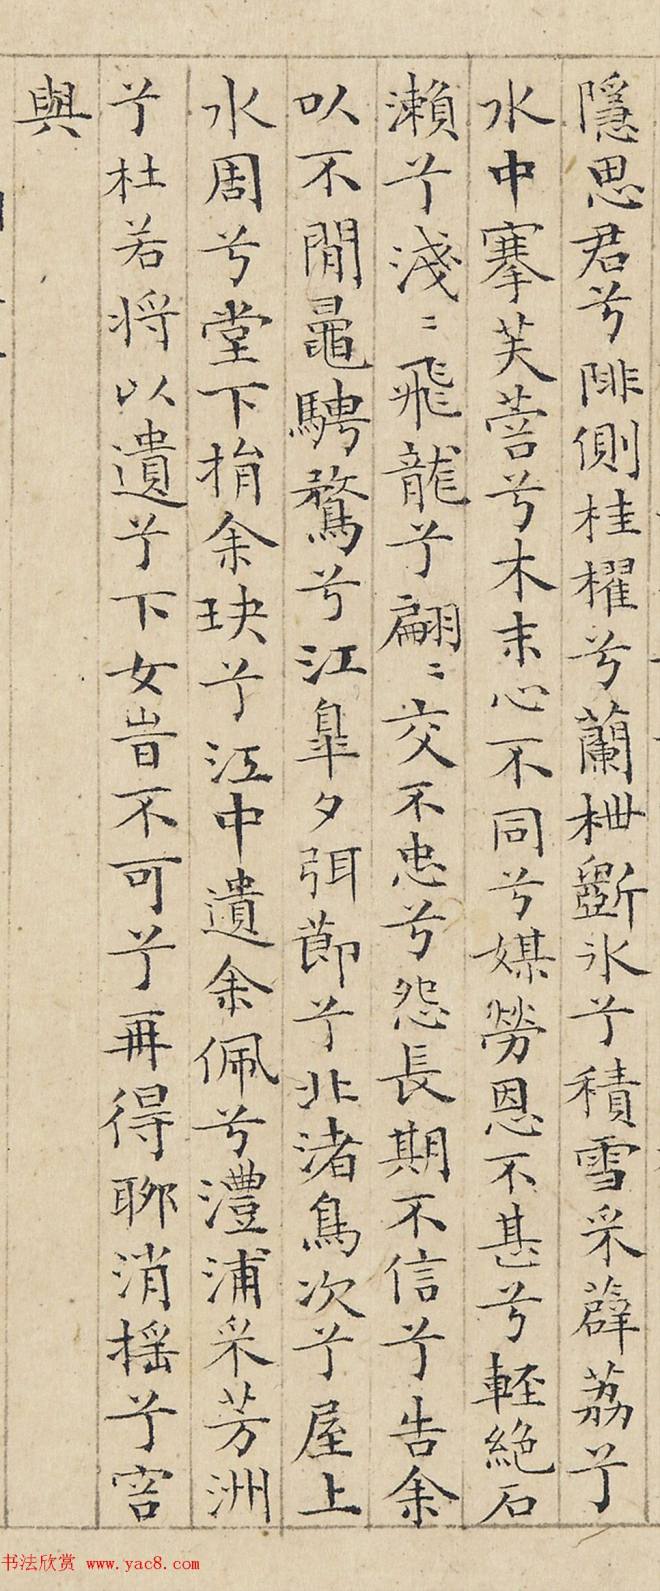 隱思君兮陫側桂櫂兮蘭枻斲氷兮積雪采薜荔兮
水中搴芙蓉兮木末心不同兮媒勞恩不甚兮輕絶石
瀨兮淺〻飛龍兮翩〻交不忠兮怨長期不信兮告余
以不閒鼂騁騖兮江臯夕弭節兮北渚鳥次兮屋上
水周兮堂下捐余玦兮江中遺余佩兮澧浦采芳洲
兮杜若將以遺兮下女旹不可兮再得聊消搖兮容
與
书法欣赏 www.yac8.com